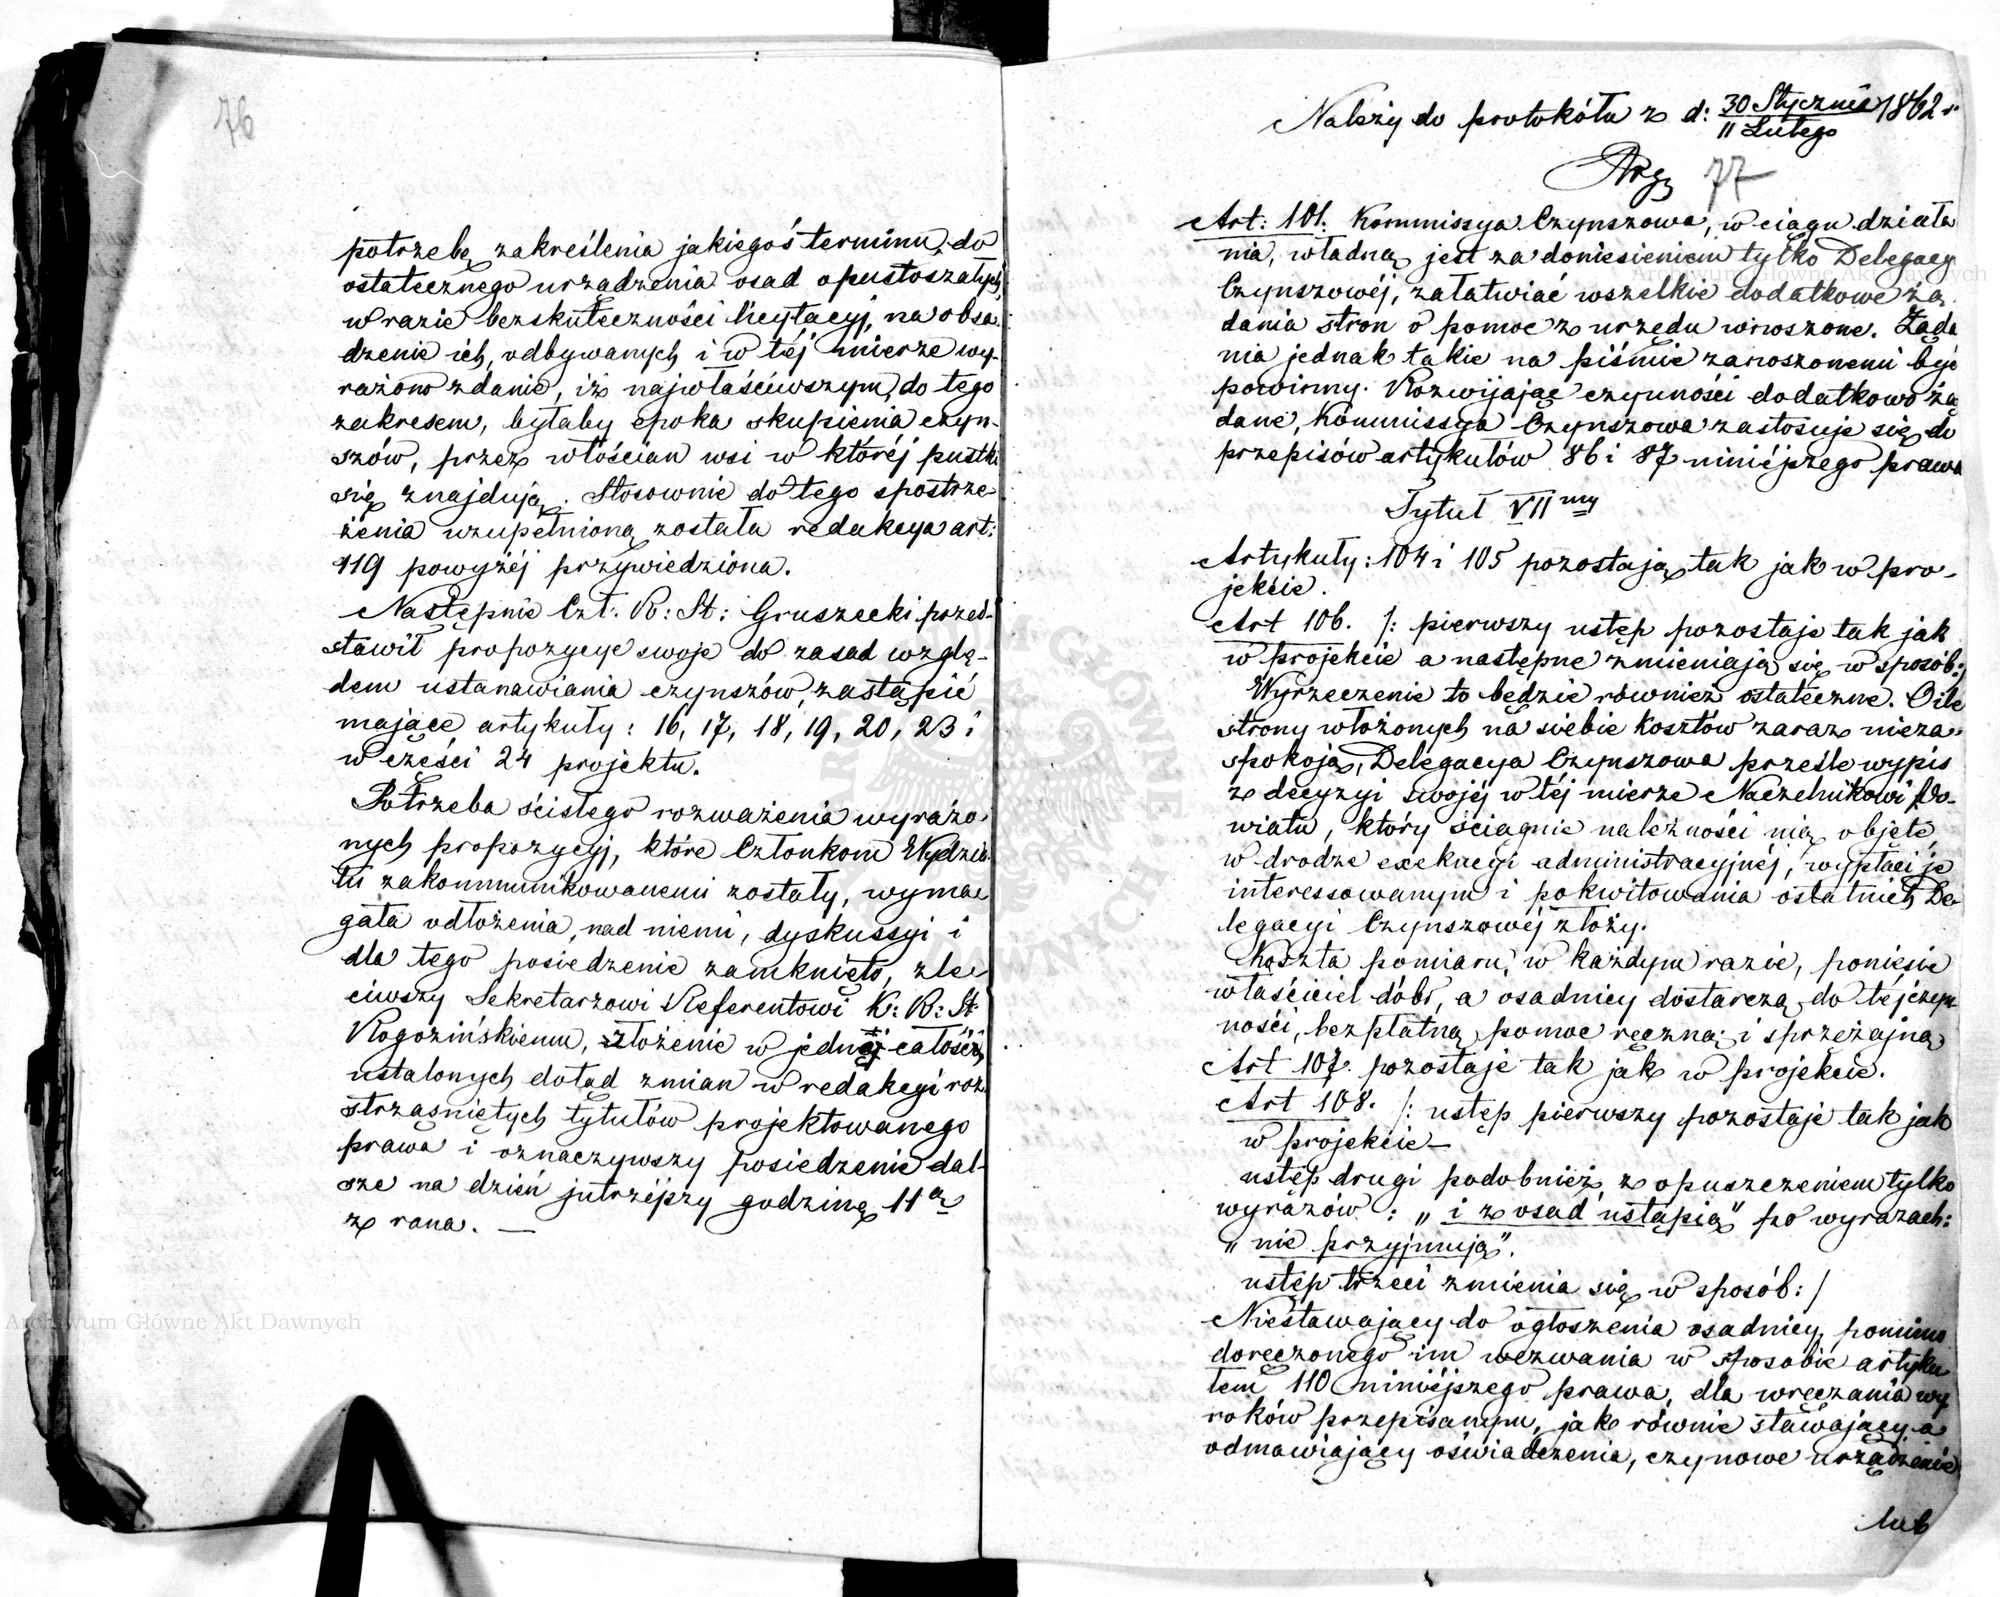 76
potrzebę zakreślenia jakiegoś terminu, do
ostatecznego urządzenia osad opustoszałych,
w razie bezskuteczności licytacyj, na obsa-
dzenie ich, odbywanych i w téj mierze wy-
rażono zdanie, iż najwłaściwszym, do tego
zakresem, byłaby epoka skupienia czyn-
szów, przez włościan wsi w któréj pustki
się znajdują. Stosownie do tego spostrze-
żenia uzupełnioną została redakcya art:
119 powyżéj przywiedziona.
Następnie Czł: R: St: Gruszecki przed-
stawił propozycye swoje do zasad wzglę-
dem ustanawiania czynszów, zastąpić
mające artykuły: 16, 17, 18, 19, 20, 23 i
w części 24 projektu.
Potrzeba ścisłego rozważenia wyrażo-
nych propozycyj, które Członkom Wydzia-
łu zakommunikowanemi zostały, wyma-
gała odłożenia, nad niemi, dyskussyi i
dla tego posiedzenie zamknięto, zle-
ciwszy Sekretarzowi Referentowi K: R: St:
Rogozińskiemu, złożenie w jednéj całości
ustalonych dotąd zmian w redakcyi roz-
strząśniętych tytułów projektowanego
prawa i oznaczywszy posiedzenie dal-
sze na dzień jutrzéjszy godzinę 11ą
z rana. —
Należy do protokółu z d: 30 Stycznia 1862 r.
11 Lutego
77
Art: 101. Kommissya Czynszowa, w ciągu działa
nia, władną jest za doniesieniem tylko Delegacyi
Czynszowéj, załatwiać wszelkie dodatkowe żą-
dania stron o pomoc z urzędu wnoszone. Żąda
nia jednak takie na piśmie zanoszonemi być
powinny. Rozwijając czynności dodatkowo żą
dane, Kommissya Czynszowa zastosuje się do
przepisów artykułów 86 i 87 niniéjszego prawa
Tytuł VIImy
Artykuły: 104 i 105 pozostają tak jak w pro-
jekcie.
Art 106. /: pierwszy ustęp pozostaje tak jak
w projekcie a następne zmieniają się w sposób:/
Wyrzeczenie to będzie również ostateczne. O ile
strony włożonych na siebie kosztów zaraz nieza-
spokoją, Delegacya Czynszowa prześle wypis
z decyzyi swojéj w téj mierze Naczelnikowi Po-
wiatu, który ściągnie należności nią objęte,
w drodze exekucyi administracyjnéj, wypłaci je
interessowanym i pokwitowania ostatnich De-
legacyi Czynszowéj złoży.
Koszta pomiaru, w każdym razie, poniesie
właściciel dóbr, a osadnicy dostarczą do téj czyn
ności, bezpłatną pomoc ręczną i sprzężajną.
Art 107. pozostaje tak jak w projekcie.
Art 108. /: ustęp pierwszy pozostaje tak jak
w projekcie —
ustęp drugi podobnież z opuszczeniem tylko
wyrazów: „i z osad ustąpią” po wyrazach:
„nie przyjmują”.
ustęp trzeci zmienia się w sposób:/
Niestawający do ogłoszenia osadnicy, pomimo
doręczonego im wezwania w sposobie artyku
łem 110 niniéjszego prawa, dla wręczania wy
roków przepisanym, jak równie stawający a
odmawiający oświadczenia, czynowe urządzenie
lub
Archiwum Główne Akt Dawnych
Archiwum Główne Akt Dawnych